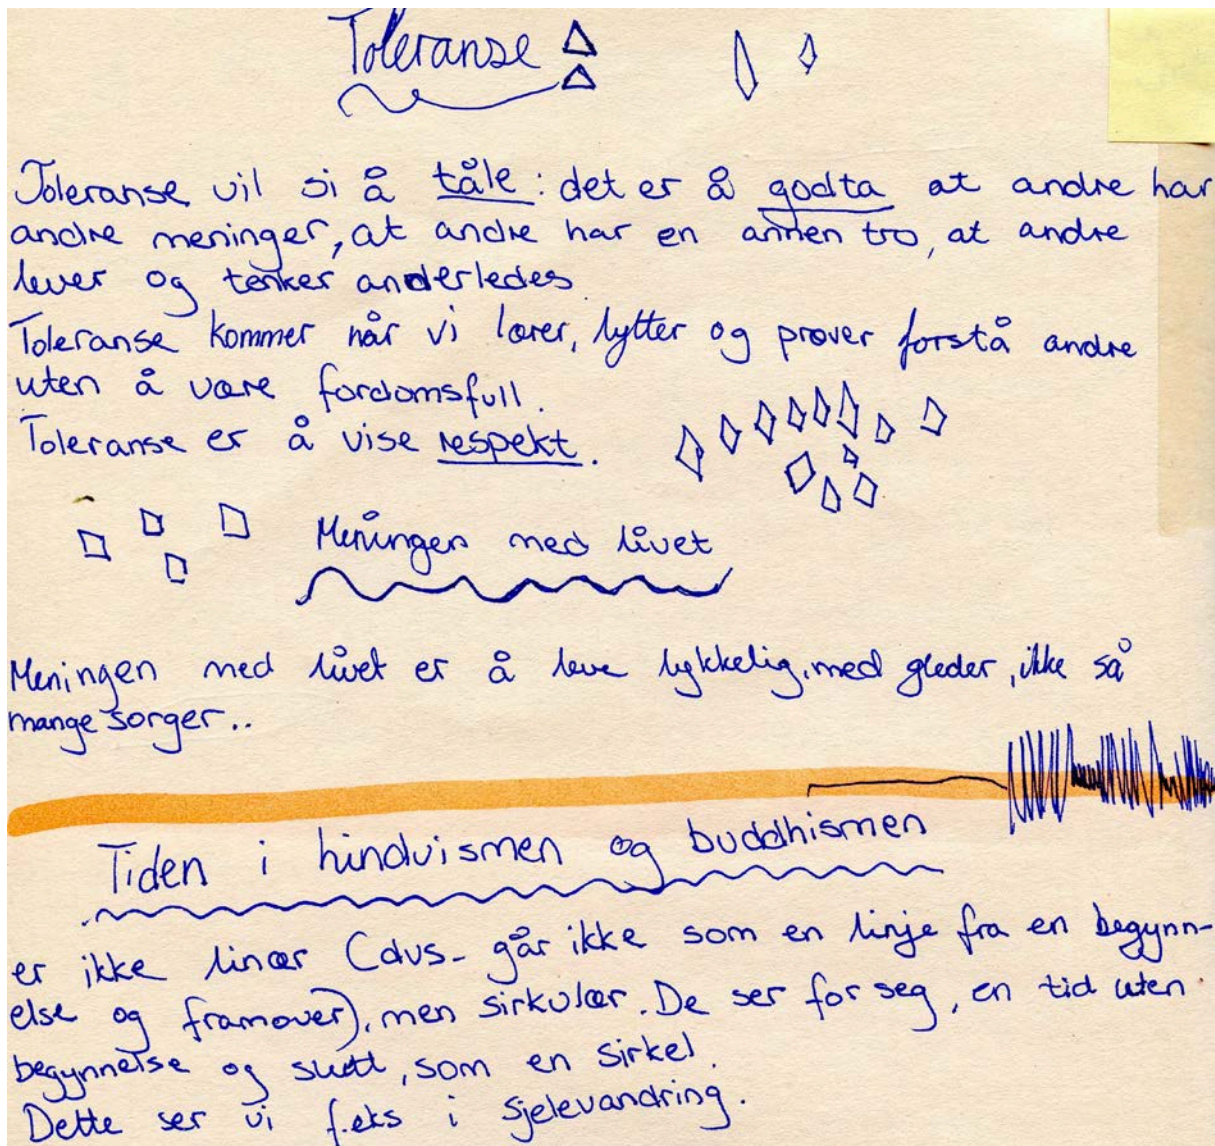 Toleranse
Toleranse vil si å tåle: det er å godta at andre har
andre meninger, at andre har en annen tro, at andre
lever og tenker anderledes
Toleranse kommer når vi lærer, lytter og prøver forstå andre
uten å være fordomsfull.
Toleranse er å vise respekt.
Meningen med livet
Meningen med livet er å leve lykkelig, med gleder, ikke så
mange sorger..
Tiden i hinduismen og buddhismen
er ikke linær (dvs. går ikke som en linje fra en begynn-
else og framover), men sirkulær. De ser for seg, en tid uten
begynnelse og slutt, som en sirkel.
Dette ser vi f.eks i sjelevandring.